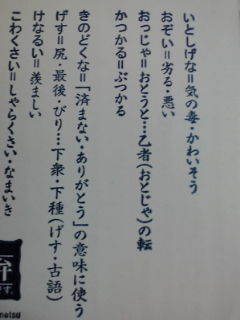 いとしげな＝気の毒・かわいそう
おぞい＝劣る・悪い
おっじゃ＝おとうと…乙者（おとじゃ）の転
かつかる＝ぶつかる
きのどくな＝「済まない・ありがとう」の意味に使う
げす＝尻・最後・びり…下衆・下種（げす・古語）
けなるい＝羨ましい
こわくさい＝しゃらくさい・なまいき
弁